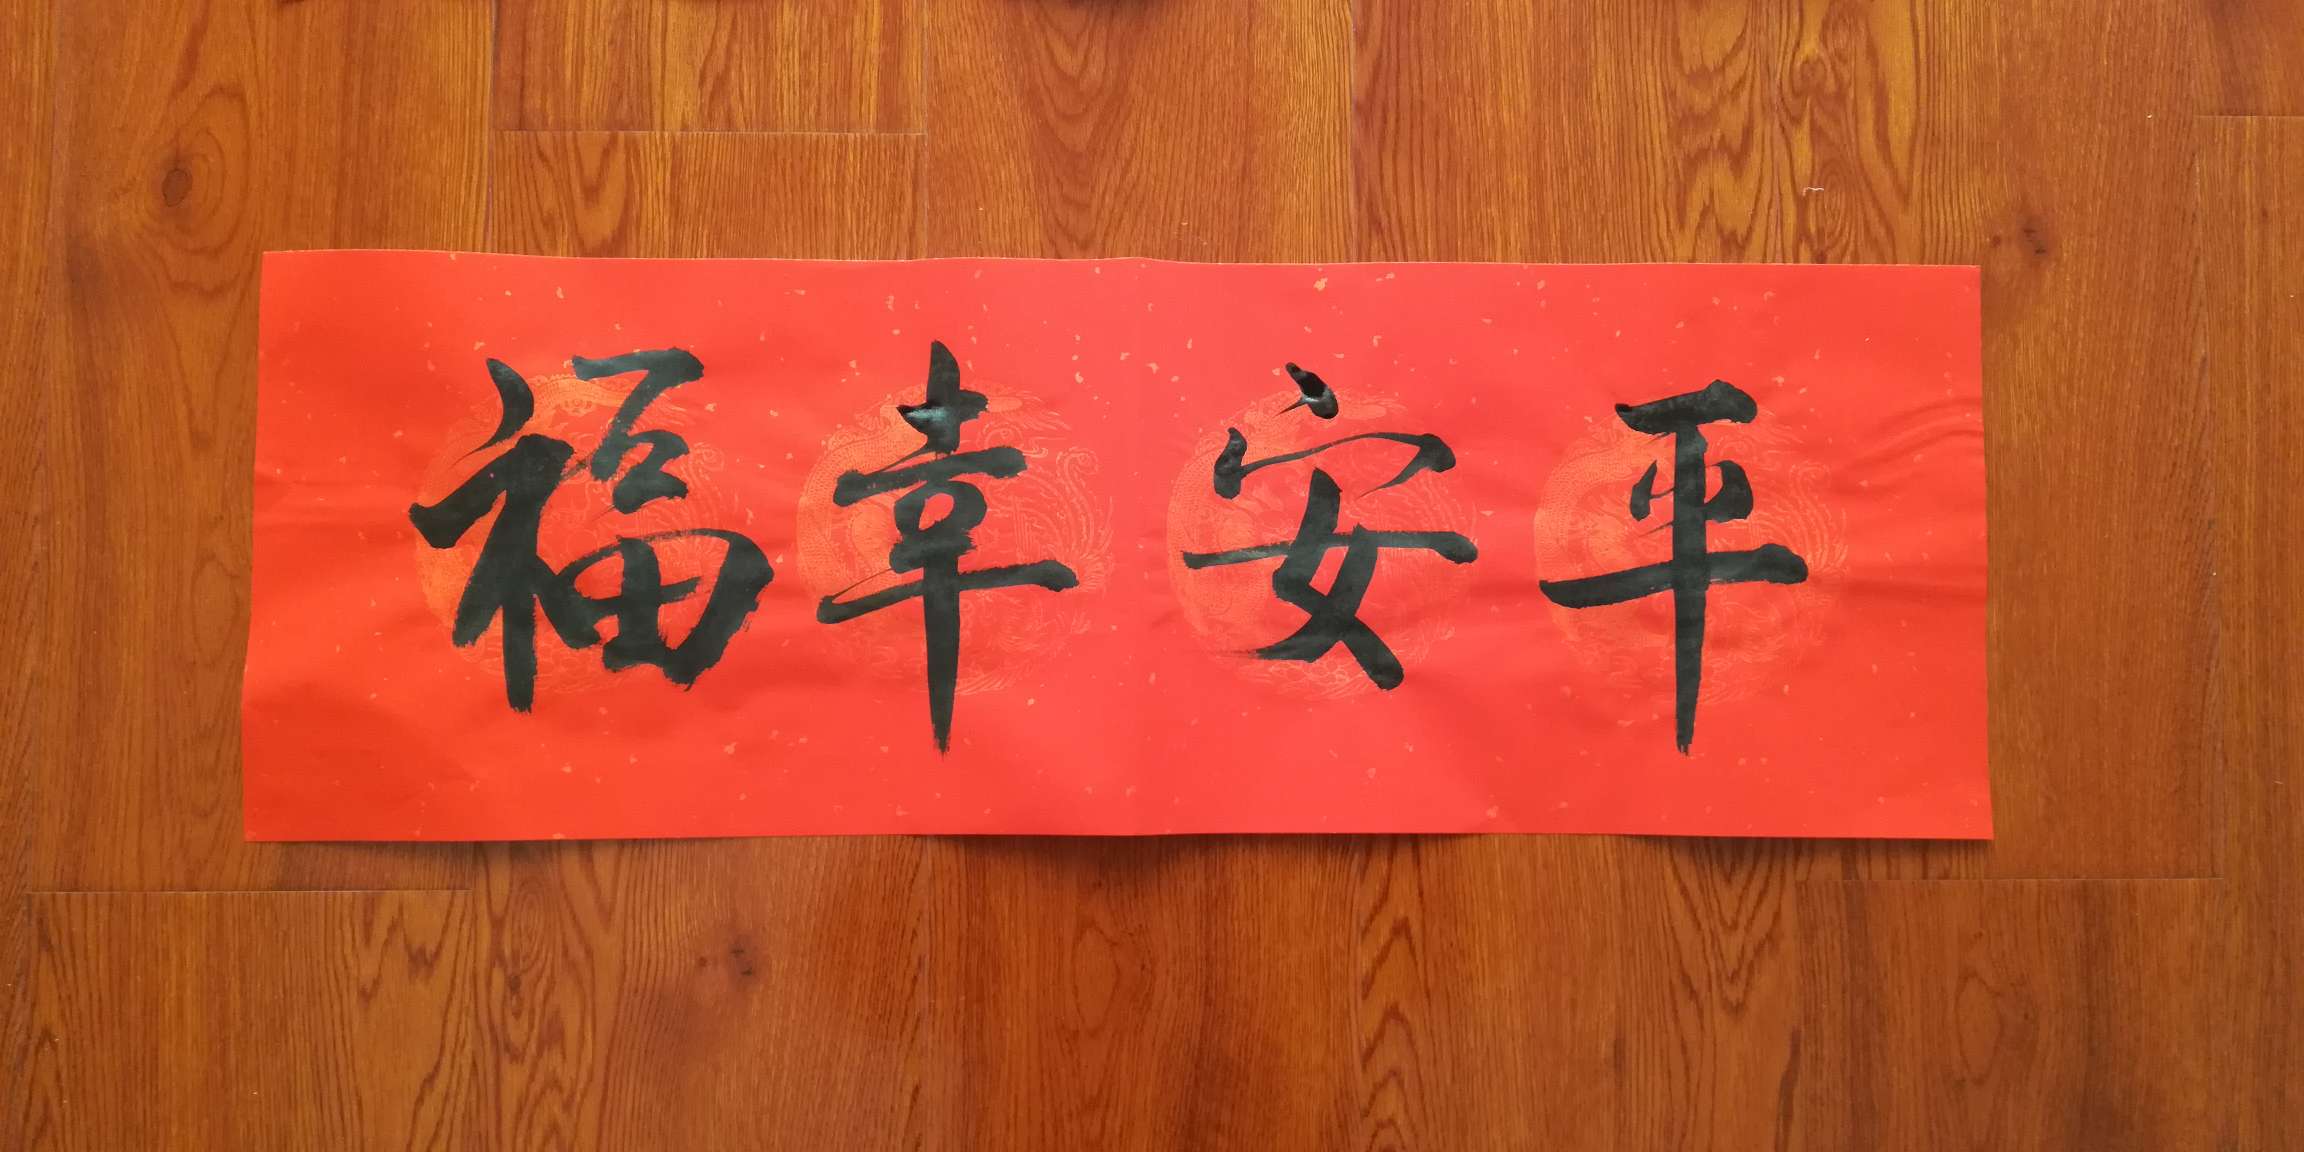 平安幸福